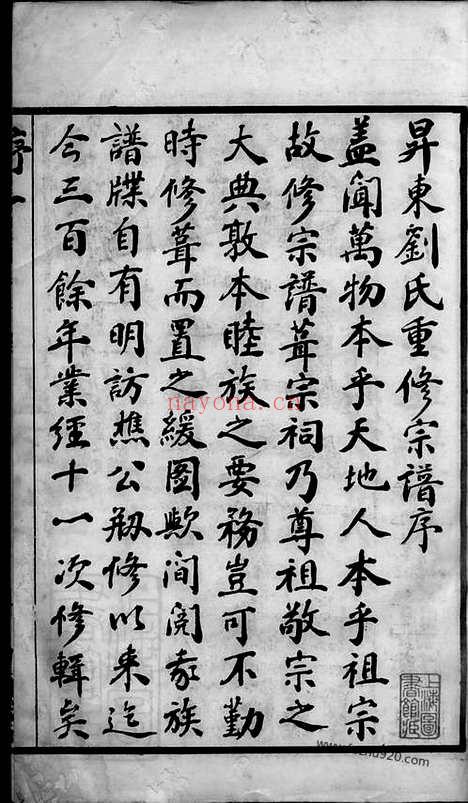 昇東劉氏重修宗譜序
盖聞萬物本乎天地人本乎祖宗
故修宗譜葺宗祠乃尊祖敬宗之
大典敦本睦族之要務豈可不勤
時修葺而置之緩圖歟間閱我族
譜牒自有明訪樵公刱修以来迄
今三百餘年業經十一次修輯矣
序一
上海圖書館藏
nayona.cn